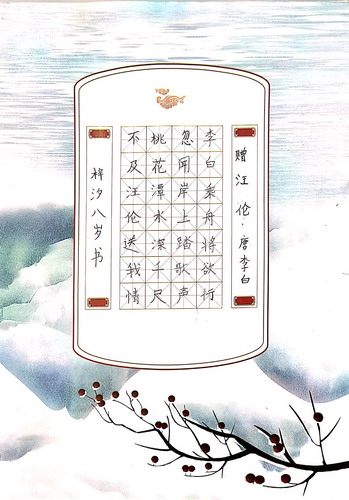 赠汪伦·唐李白
李白乘舟将欲行
忽闻岸上踏歌声
桃花潭水深千尺
不及汪伦送我情
梓汐八岁书